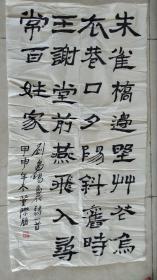 朱雀橋邊野艸花烏
衣巷口夕陽斜舊時
王謝堂前燕飛入尋
常百姓家
劉禹錫
甲申年